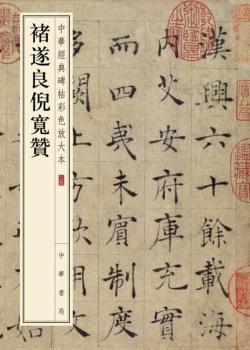 中華經典碑帖彩色放大本
褚遂良倪寬贊
中華書局
漢興六十餘載海
内艾安府庫充
夷未賓制度
多闕